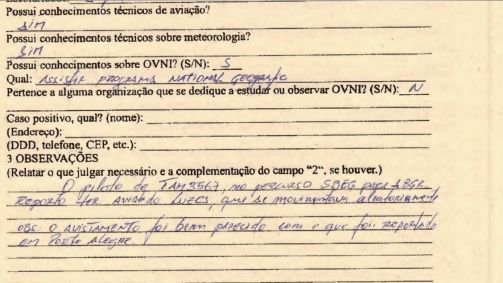 Possui conhecimentos técnicos de aviação?
SIM
Possui conhecimentos técnicos sobre meteorologia?
SIM
Possui conhecimentos sobre OVNI? (S/N): S
Qual: ASSISTIR PROGRAMA NATIONAL GEOGRAFIC
Pertence a alguma organização que se dedique a estudar ou observar OVNI? (S/N): N
Caso positivo, qual? (nome):
(Endereço):
(DDD, telefone, CEP, etc.):
3 OBSERVAÇÕES
(Relatar o que julgar necessário e a complementação do campo "2", se houver.)
O piloto da TAM3567, no percurso SBEG para SBGR
Reportou ter avistado LUZES, que se movimentava aleatoriamente
OBS. O AVISTAMENTO foi bem parecido com o que foi reportado
em Porto Alegre.